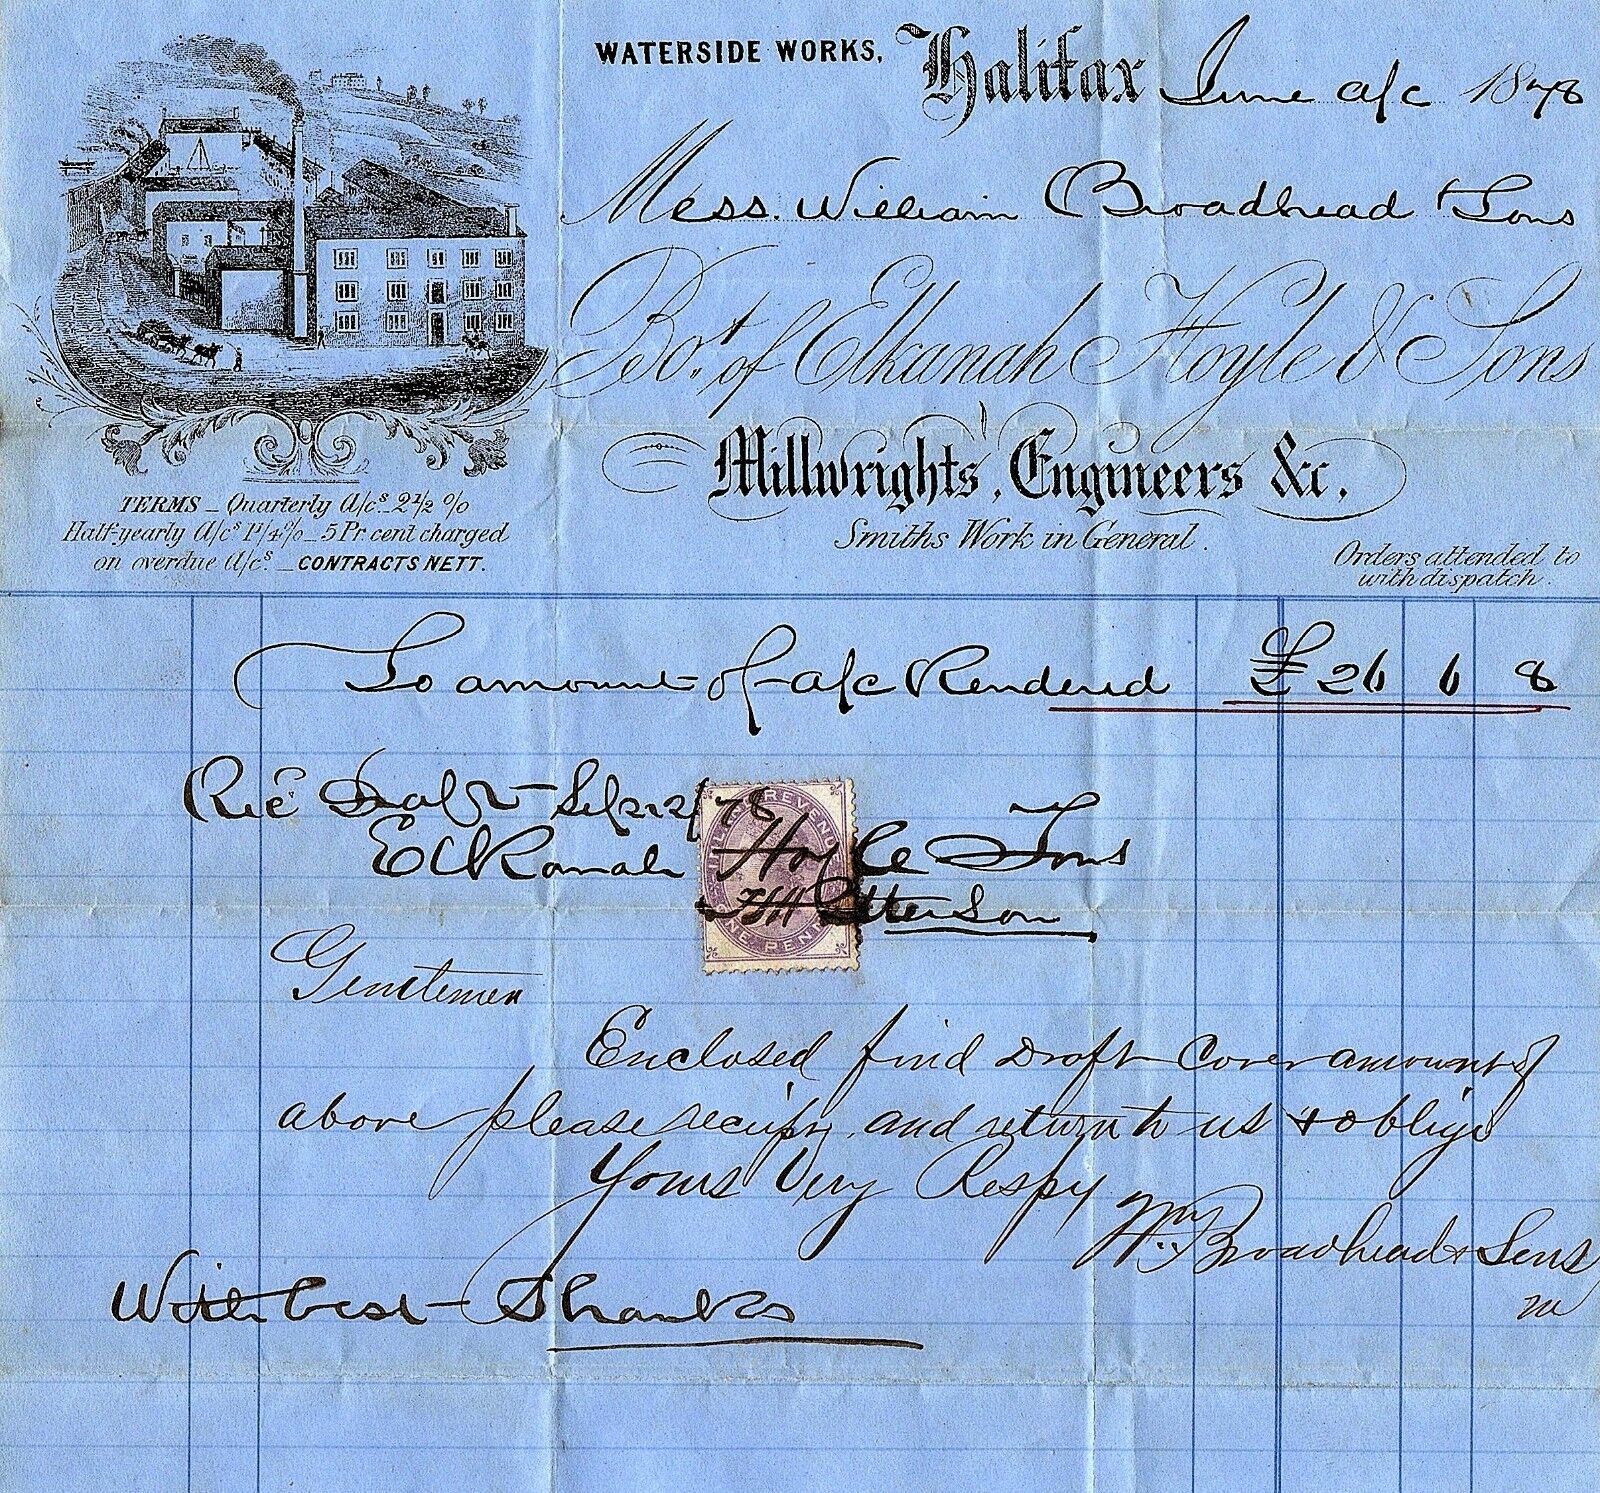 WATERSIDE WORKS, Halifax June a/c 1878
Mess. William Broadhead & Sons
Bot. of Elkanah Hoyle & Sons
Millwrights, Engineers &c,
Smiths Work in General.
Orders attended to
with dispatch.
TERMS _ Quarterly A/cs. 2 1/2 %
Half-yearly A/cs 1 1/4 % _ 5 Pr cent charged
on overdue A/cs. _ CONTRACTS NETT.
To amount of a/c Rendered £26 6 8
Recd Draft Sep 22/78
Elkanah Hoyle & Sons
INLAND REVENUE
ONE PENNY
Gentlemen
Enclosed find Draft Cover amount of
above please receipt and return to us & oblige
Yours Very Respy
Wm Broadhead & Sons
With best Thanks